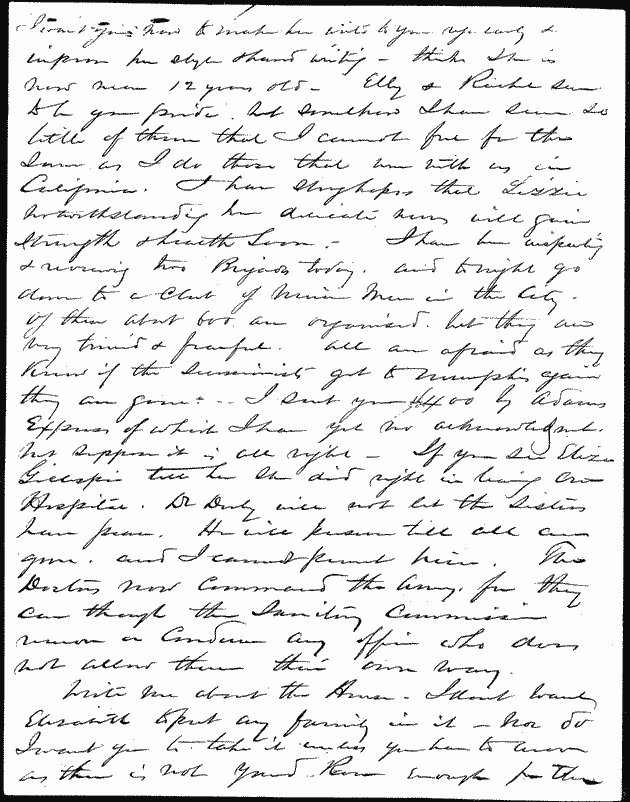 how to make her write to you regularly &
improve her style & hand writing - thinks she is
now near 12 years old - Elly & Rachel seem
to be your pride. but somehow I have seen so
little of them that I cannot feel for them
same as I do those that were with us in
California. I have strong hopes that Lizzie
notwithstanding her delicate nerves will gain
strength & health soon. - I have been inspecting
& reviewing two Brigades today. and tonight go
down to a Club of Union Men in the City.
of them about 600 are organised. but they are
very timid & fearful. all are afraid as they
know if the Secessionists get to Memphis again
they are gone. - I sent you $400 by Adams
Express of which I have yet no acknowledgmt.
but suppose it is all right - If you see Eliza
Gillespie tell her she did right in leaving our
Hospital. Dr Derby will not let the Sisters
have peace. He will persevere till all are
gone. and I cannot prevent him. The
Doctors now command the Army, for they
can through the Sanitary Commission
remove or Condemn any officer who does
not allow them their own way.
Write me about the House - I dont want
Elizabeth to put any family in it - Nor do
I want you to take it unless you have to move
as there is not Yard Room enough for the